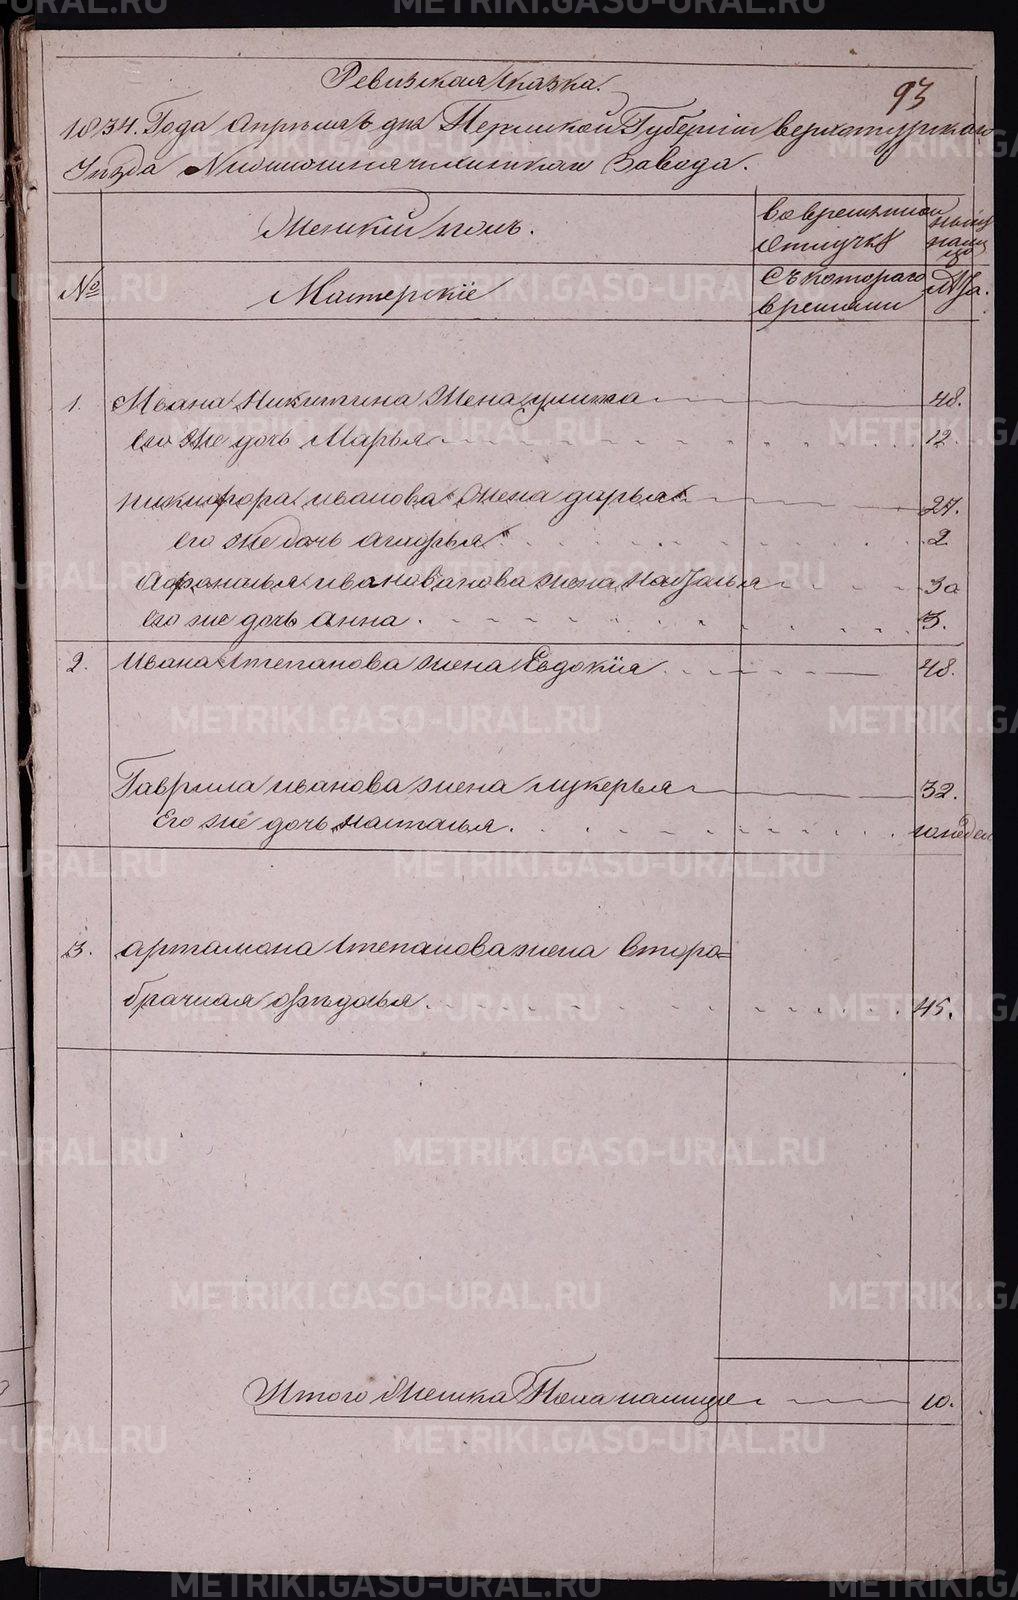 93
Ревизская сказка.
1834. Года Апреля дня Пермской Губернии верхотурскаго
Уезда Завода.
Женский полъ.
во временной отлучке
ныне на лицо
№
Мастерские
Съ котораго времени
Лета.
1. Ивана Никитина Жена улита 48.
Его же дочь Марья 12.
никифора иванова жена дарья 27.
его же дочь 2
Афонасья иванова жена наталья 30
его же дочь анна 3.
2. Ивана Степанова жена Евдокия 48.
Гаврила иванова жена лукерья 32.
Его же дочь настасья недел
3. артамона степанова жена второ=
брачная 45.
Итого Женска Пола налицо 10.
METRIKI.GASO-URAL.RU